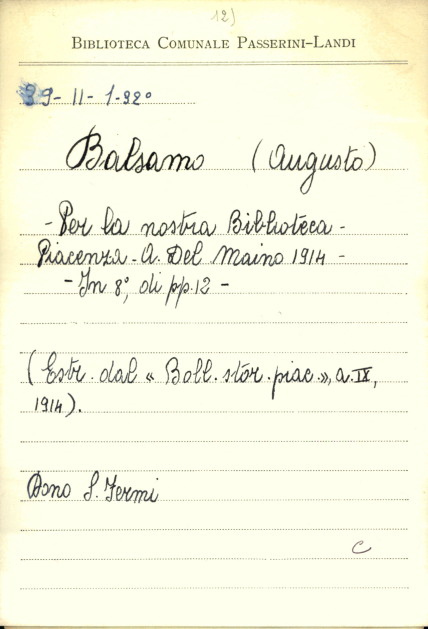 12)
BIBLIOTECA COMUNALE PASSERINI-LANDI
39- II- 1-32°
Balsamo (Augusto)
- Per la nostra Biblioteca -
Piacenza - A. Del Maino 1914 -
- In 8°, di pp. 12 -
(Estr. dal « Boll. stor. piac. », a. IX,
1914).
Dono S. Fermi
C